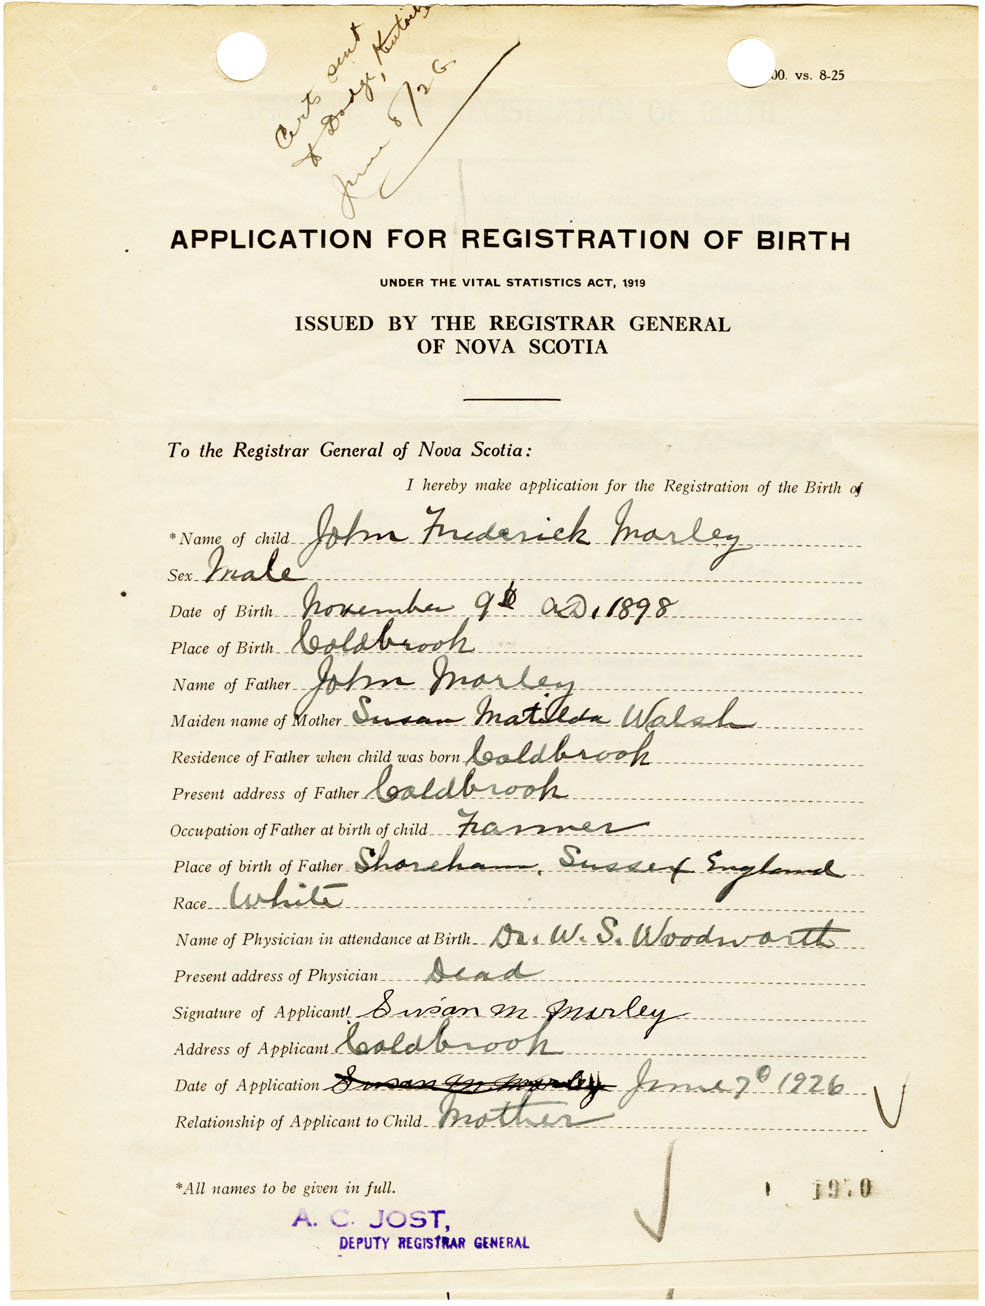 Certs sent
to Dodge, Kentville
June 8/26
00. vs. 8-25
APPLICATION FOR REGISTRATION OF BIRTH
UNDER THE VITAL STATISTICS ACT, 1919
ISSUED BY THE REGISTRAR GENERAL
OF NOVA SCOTIA
To the Registrar General of Nova Scotia:
I hereby make application for the Registration of the Birth of
*Name of child John Frederick Morley
Sex Male
Date of Birth November 9th A.D. 1898
Place of Birth Coldbrook
Name of Father John Morley
Maiden name of Mother Susan Matilda Walsh
Residence of Father when child was born Coldbrook
Present address of Father Coldbrook
Occupation of Father at birth of child Farmer
Place of birth of Father Shoreham, Sussex England
Race White
Name of Physician in attendance at Birth Dr. W. S. Woodworth
Present address of Physician Dead
Signature of Applicant Susan M Morley
Address of Applicant Coldbrook
Date of Application Susan M. Morley June 7th 1926
Relationship of Applicant to Child Mother
*All names to be given in full.
A. C. JOST,
DEPUTY REGISTRAR GENERAL